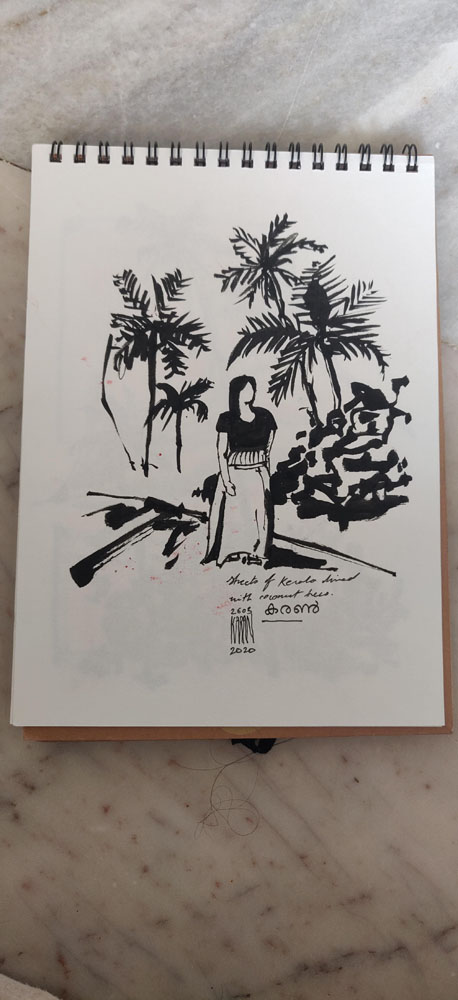 streets of Kerala lined
with coconut trees.
2605 കരൺ
KARAN
2020